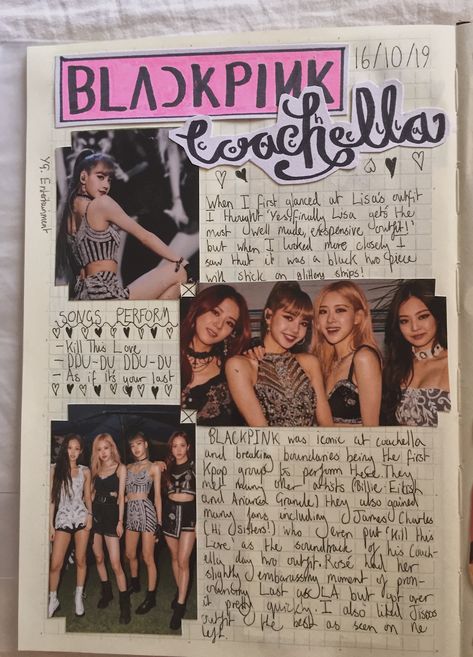 BLACKPINK
16/10/19
coachella
YG. Entertainment
When I first glanced at Lisa's outfit
I thought 'Yes! finally Lisa gets the
most well made, expensive outfit!'
but when I looked more closely I
saw that it was a black two piece
with stick on glittery strips!
SONGS PERFORM
- Kill This Love
- DDU-DU DDU-DU
- As if it's your last
BLACKPINK was iconic at coachella
and breaking boundaries being the first
Kpop group to perform there. They
met many other artists (Billie Eilish
and Ariana Grande) they also gained
many fans including James Charles
(Hi sisters!) who even put 'Kill this
Love as the soundtrack of his Coach-
ella day two outfit. Rosé had her
slightly embarassing moment of pron-
ouncing Last as LA but got over
it pretty quickly. I also liked Jisoos
outfit the best as seen on the
left.